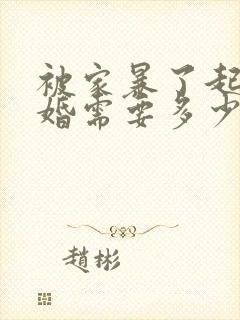 被家暴了起
婚需要多少
趙彬